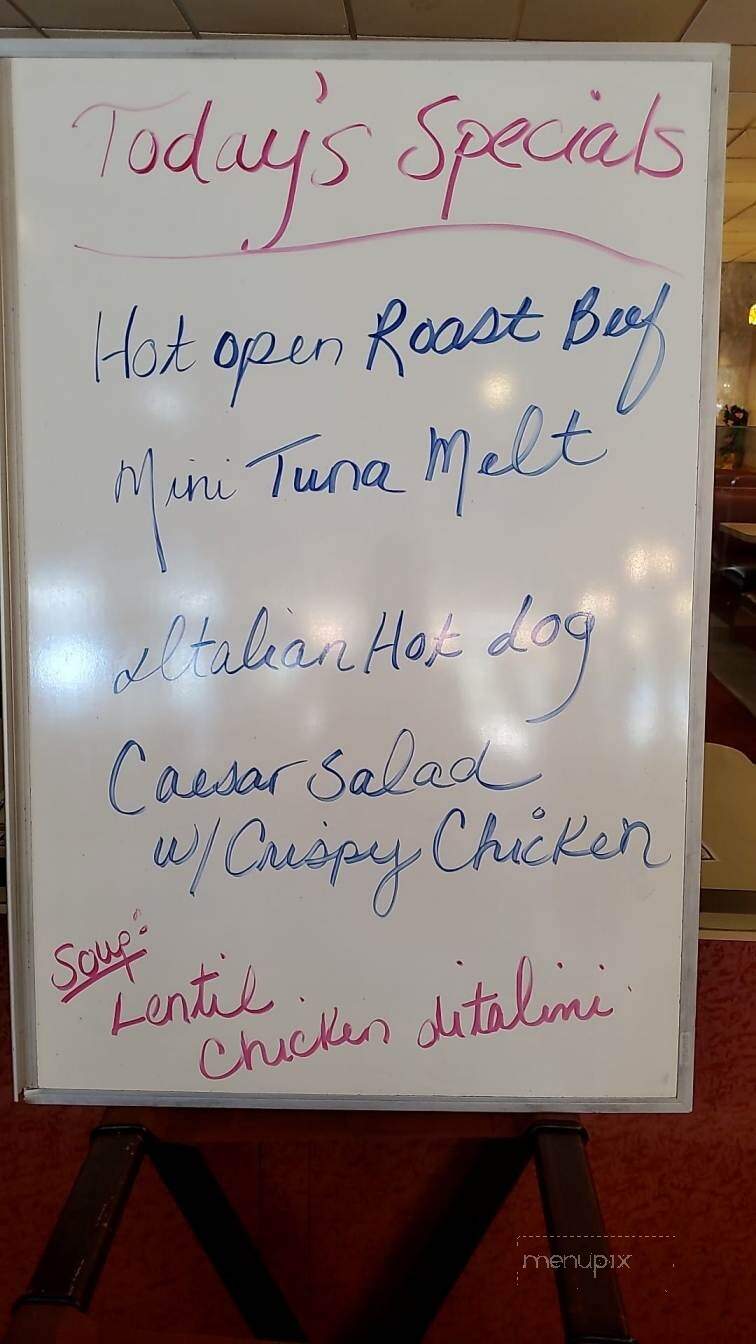 Today's Specials
Hot open Roast Beef
Mini Tuna Melt
Italian Hot dog
Caesar Salad
w/ Crispy Chicken
Soup:
Lentil
Chicken ditalini
menupix